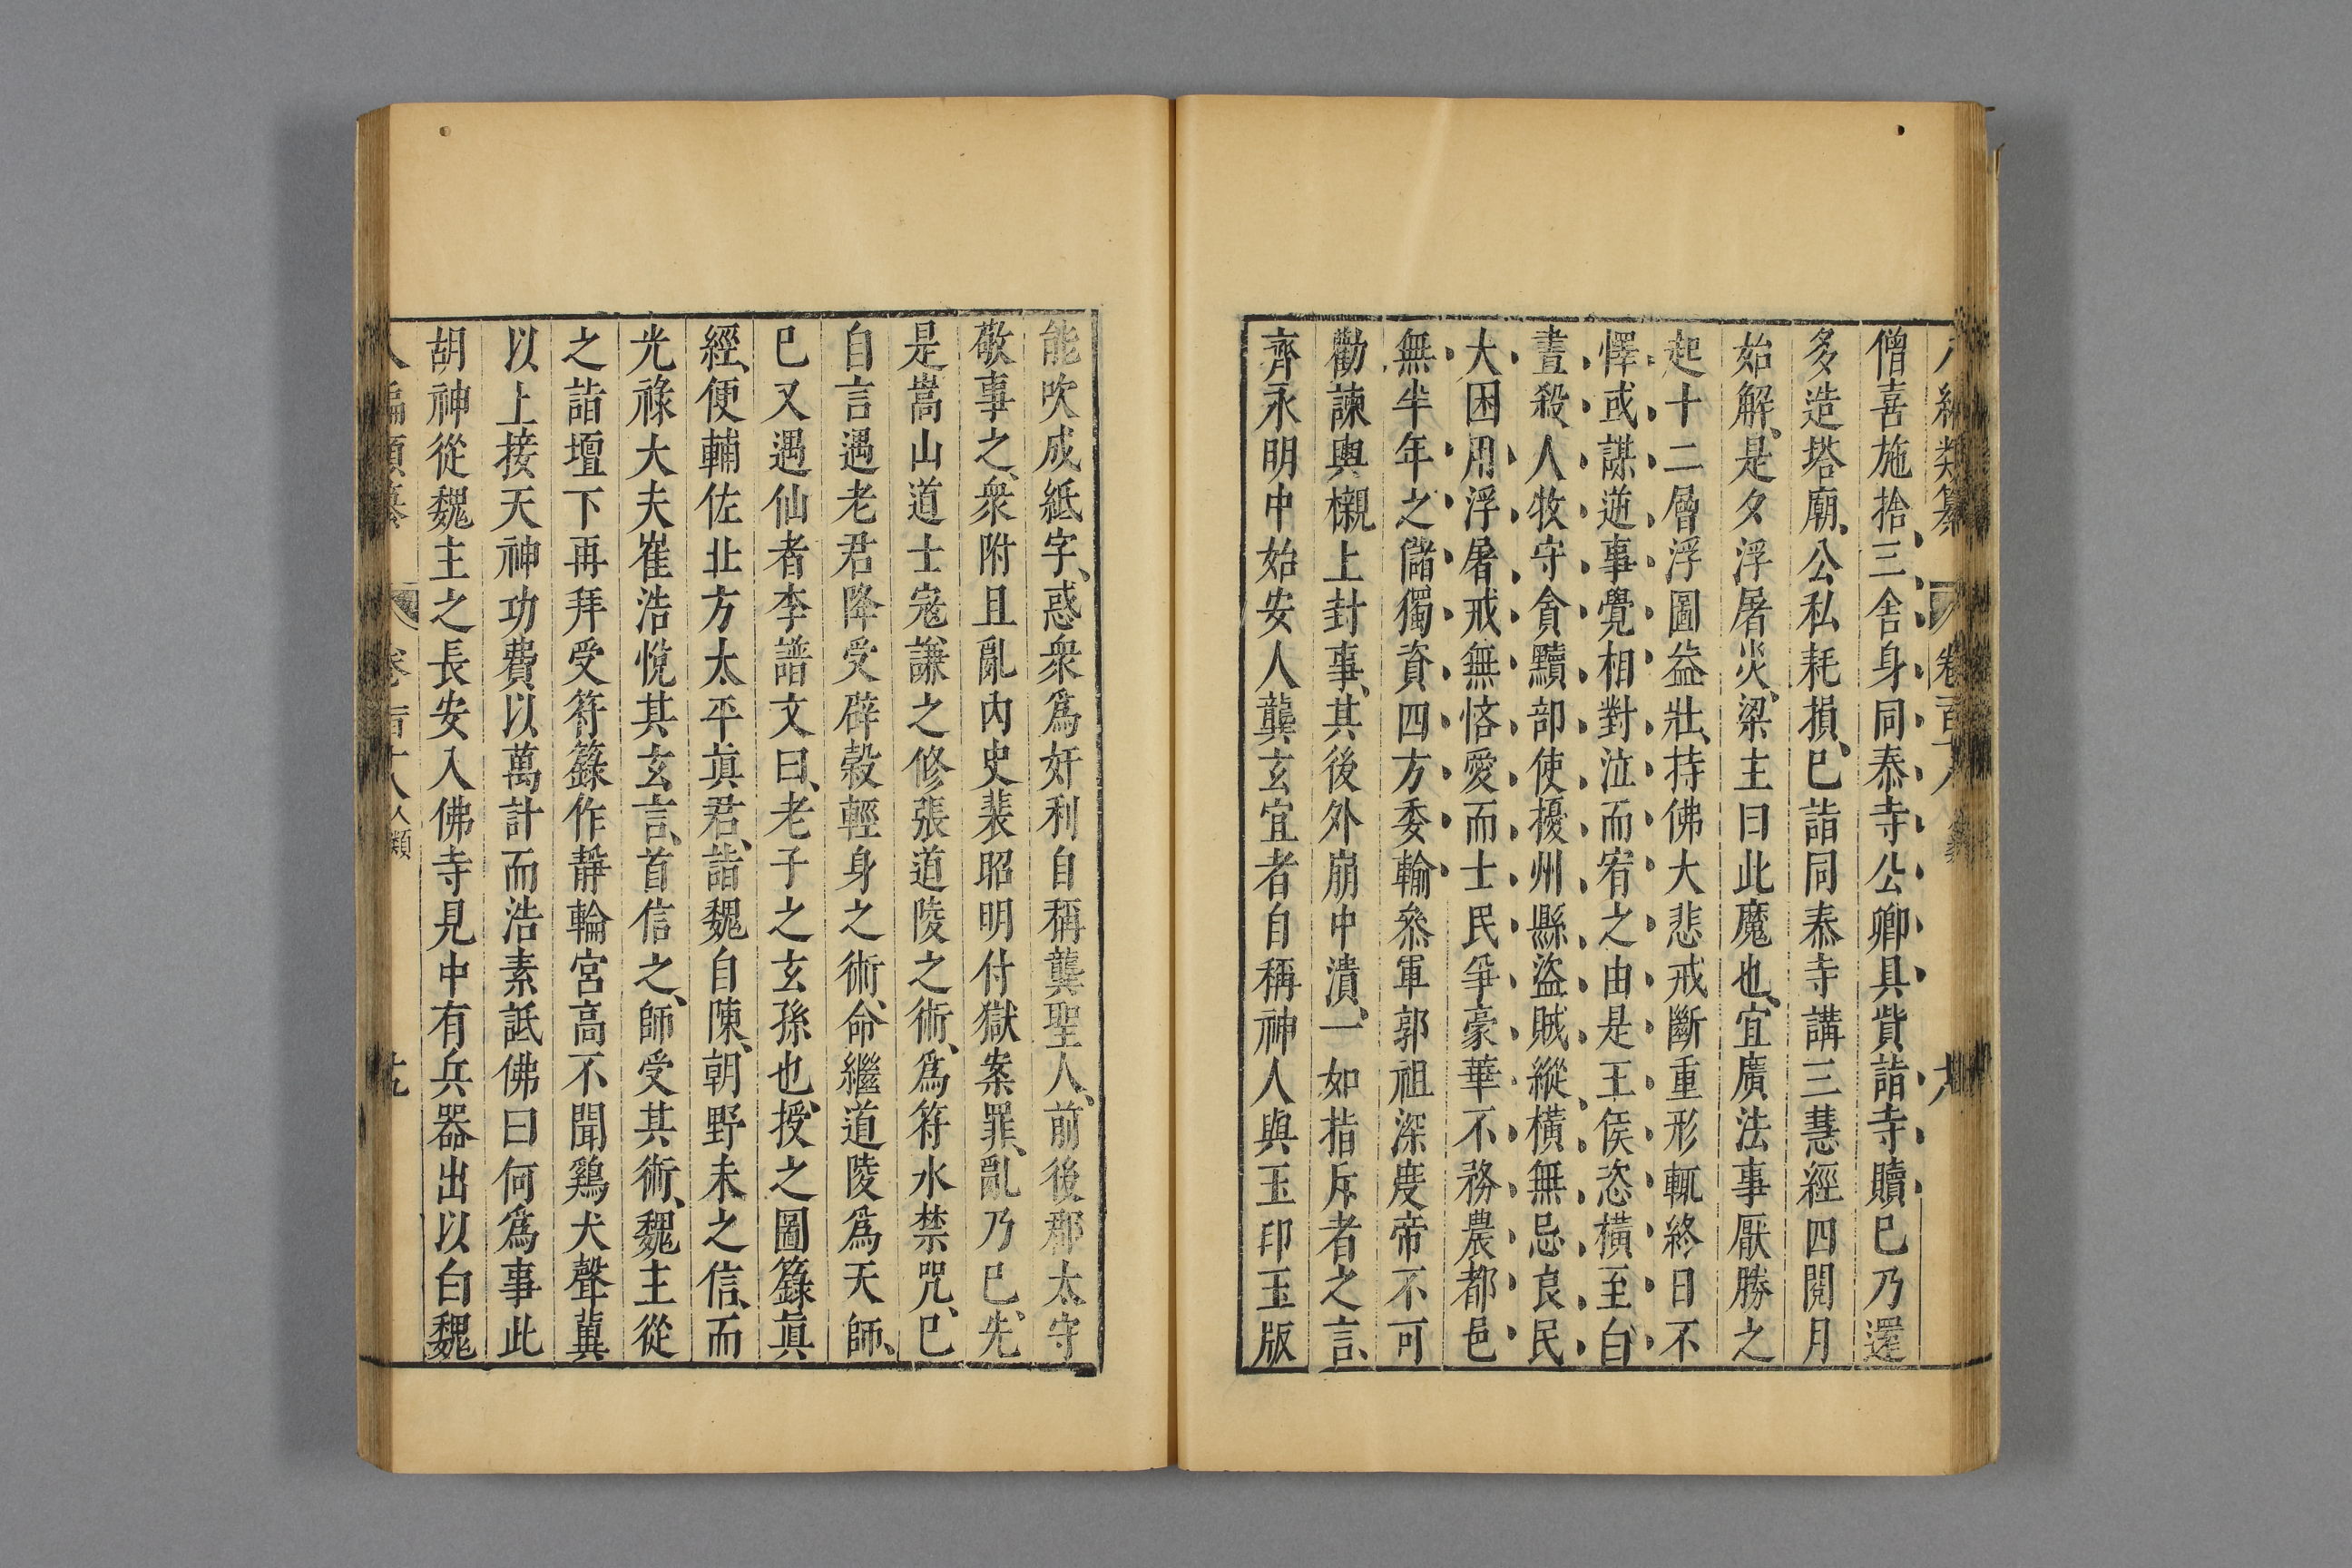 僧喜施捨、三舍身同泰寺公卿具貲詣寺贖巳乃還
多造塔廟、公私耗損、巳詣同泰寺講三慧經四閱月
始解、是夕浮屠災、梁主曰此魔也、宜廣法事厭勝之
起十二層浮圖益壯、持佛大悲戒斷重形輒終日不
懌或謀逆事覺相對泣而宥之由是王侯恣橫至白
晝殺人牧守貪黷部使擾州縣盜賊縱橫無忌良民
大困用浮屠戒無悋愛而士民爭豪華不務農都邑
無半年之儲獨資四方委輸叅軍郭祖深度帝不可
勸諫輿櫬上封事、其後外崩中潰、一如指斥者之言、
齊永明中始安人龔玄宜者自稱神人與玉印玉版
能吹成紙字、惑衆爲奸利自稱龔聖人、前後郡太守
敬事之、衆附且亂內史裴昭明付獄案罪、亂乃巳、先
是嵩山道士寇謙之修張道陵之術、爲符水禁咒、巳
自言遇老君降受辟穀輕身之術、命繼道陵爲天師、
巳又遇仙者李譜文曰、老子之玄孫也、授之圖籙眞
經、便輔佐北方太平眞君、詣魏自陳、朝野未之信、而
光祿大夫崔浩悅其玄言、首信之、師受其術、魏主從
之詣壇下再拜受符籙作靜輪宮高不聞鷄犬聲冀
以上接天神功費以萬計而浩素詆佛曰何爲事此
胡神從魏主之長安入佛寺見中有兵器出以白魏